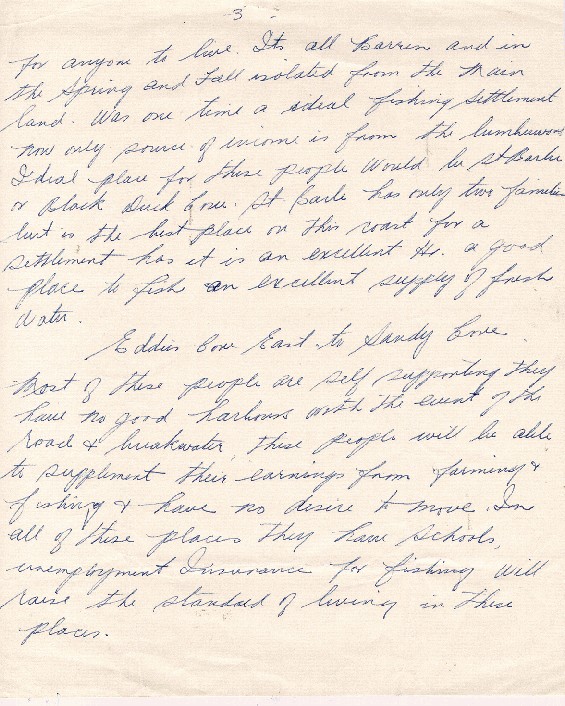 - 3 -
for anyone to live. Its all Barren and in
the Spring and Fall isolated from the main
land. Was one time a ideal fishing settlement
now only source of income is from the lumberwoods
Ideal place for these people would be St Barbe
or Black Duck Cove. St Barbe has only two families
but is the best place on this coast for a
settlement has it is an excellent Hr. a good
place to fish an excellent supply of fresh
water.
Eddies Cove East to Sandy Cove.
Most of these people are self supporting they
have no good harbours with the event of the
road & breakwater, these people will be able
to supplement their earnings from farming &
fishing & have no desire to move. In
all of these places they have schools,
unemployment Insurance for fishing will
raise the standad of living in these
places.